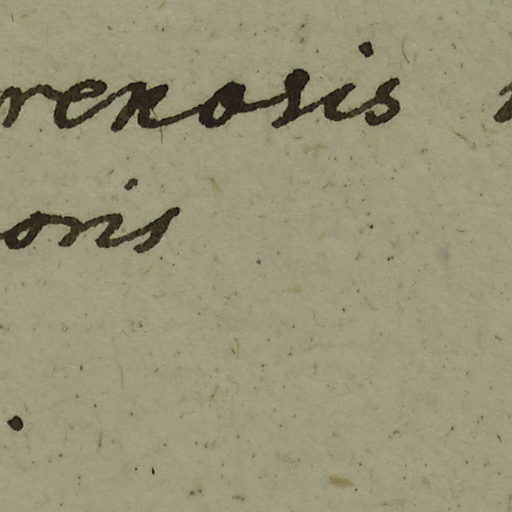 renosis
oris
.